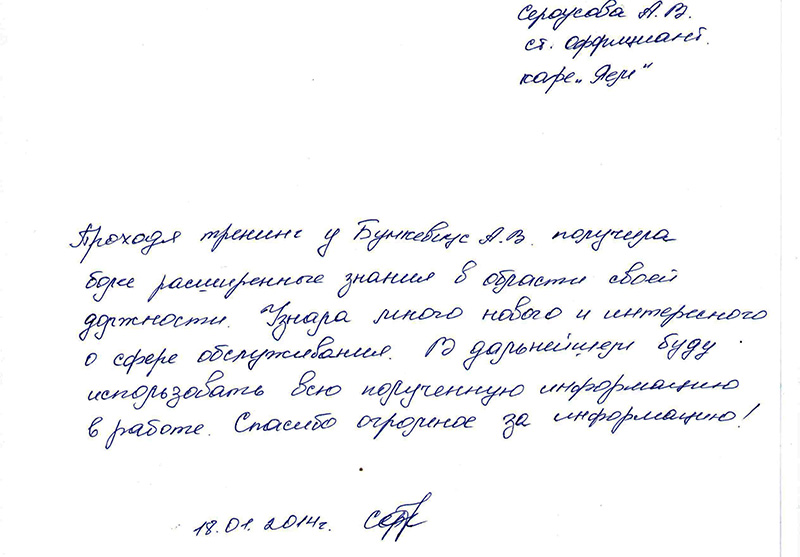 Сероусова А.В.
ст. оффициант.
кафе „
Проходя тренинг у Бункевиус А.В. получила
более расширенные знания в области своей
должности. Узнала много нового и интересного
о сфере обслуживания. В дальнейшем буду
использовать всю полученную информацию
в работе. Спасибо огромное за информацию!
18.01.2014г.